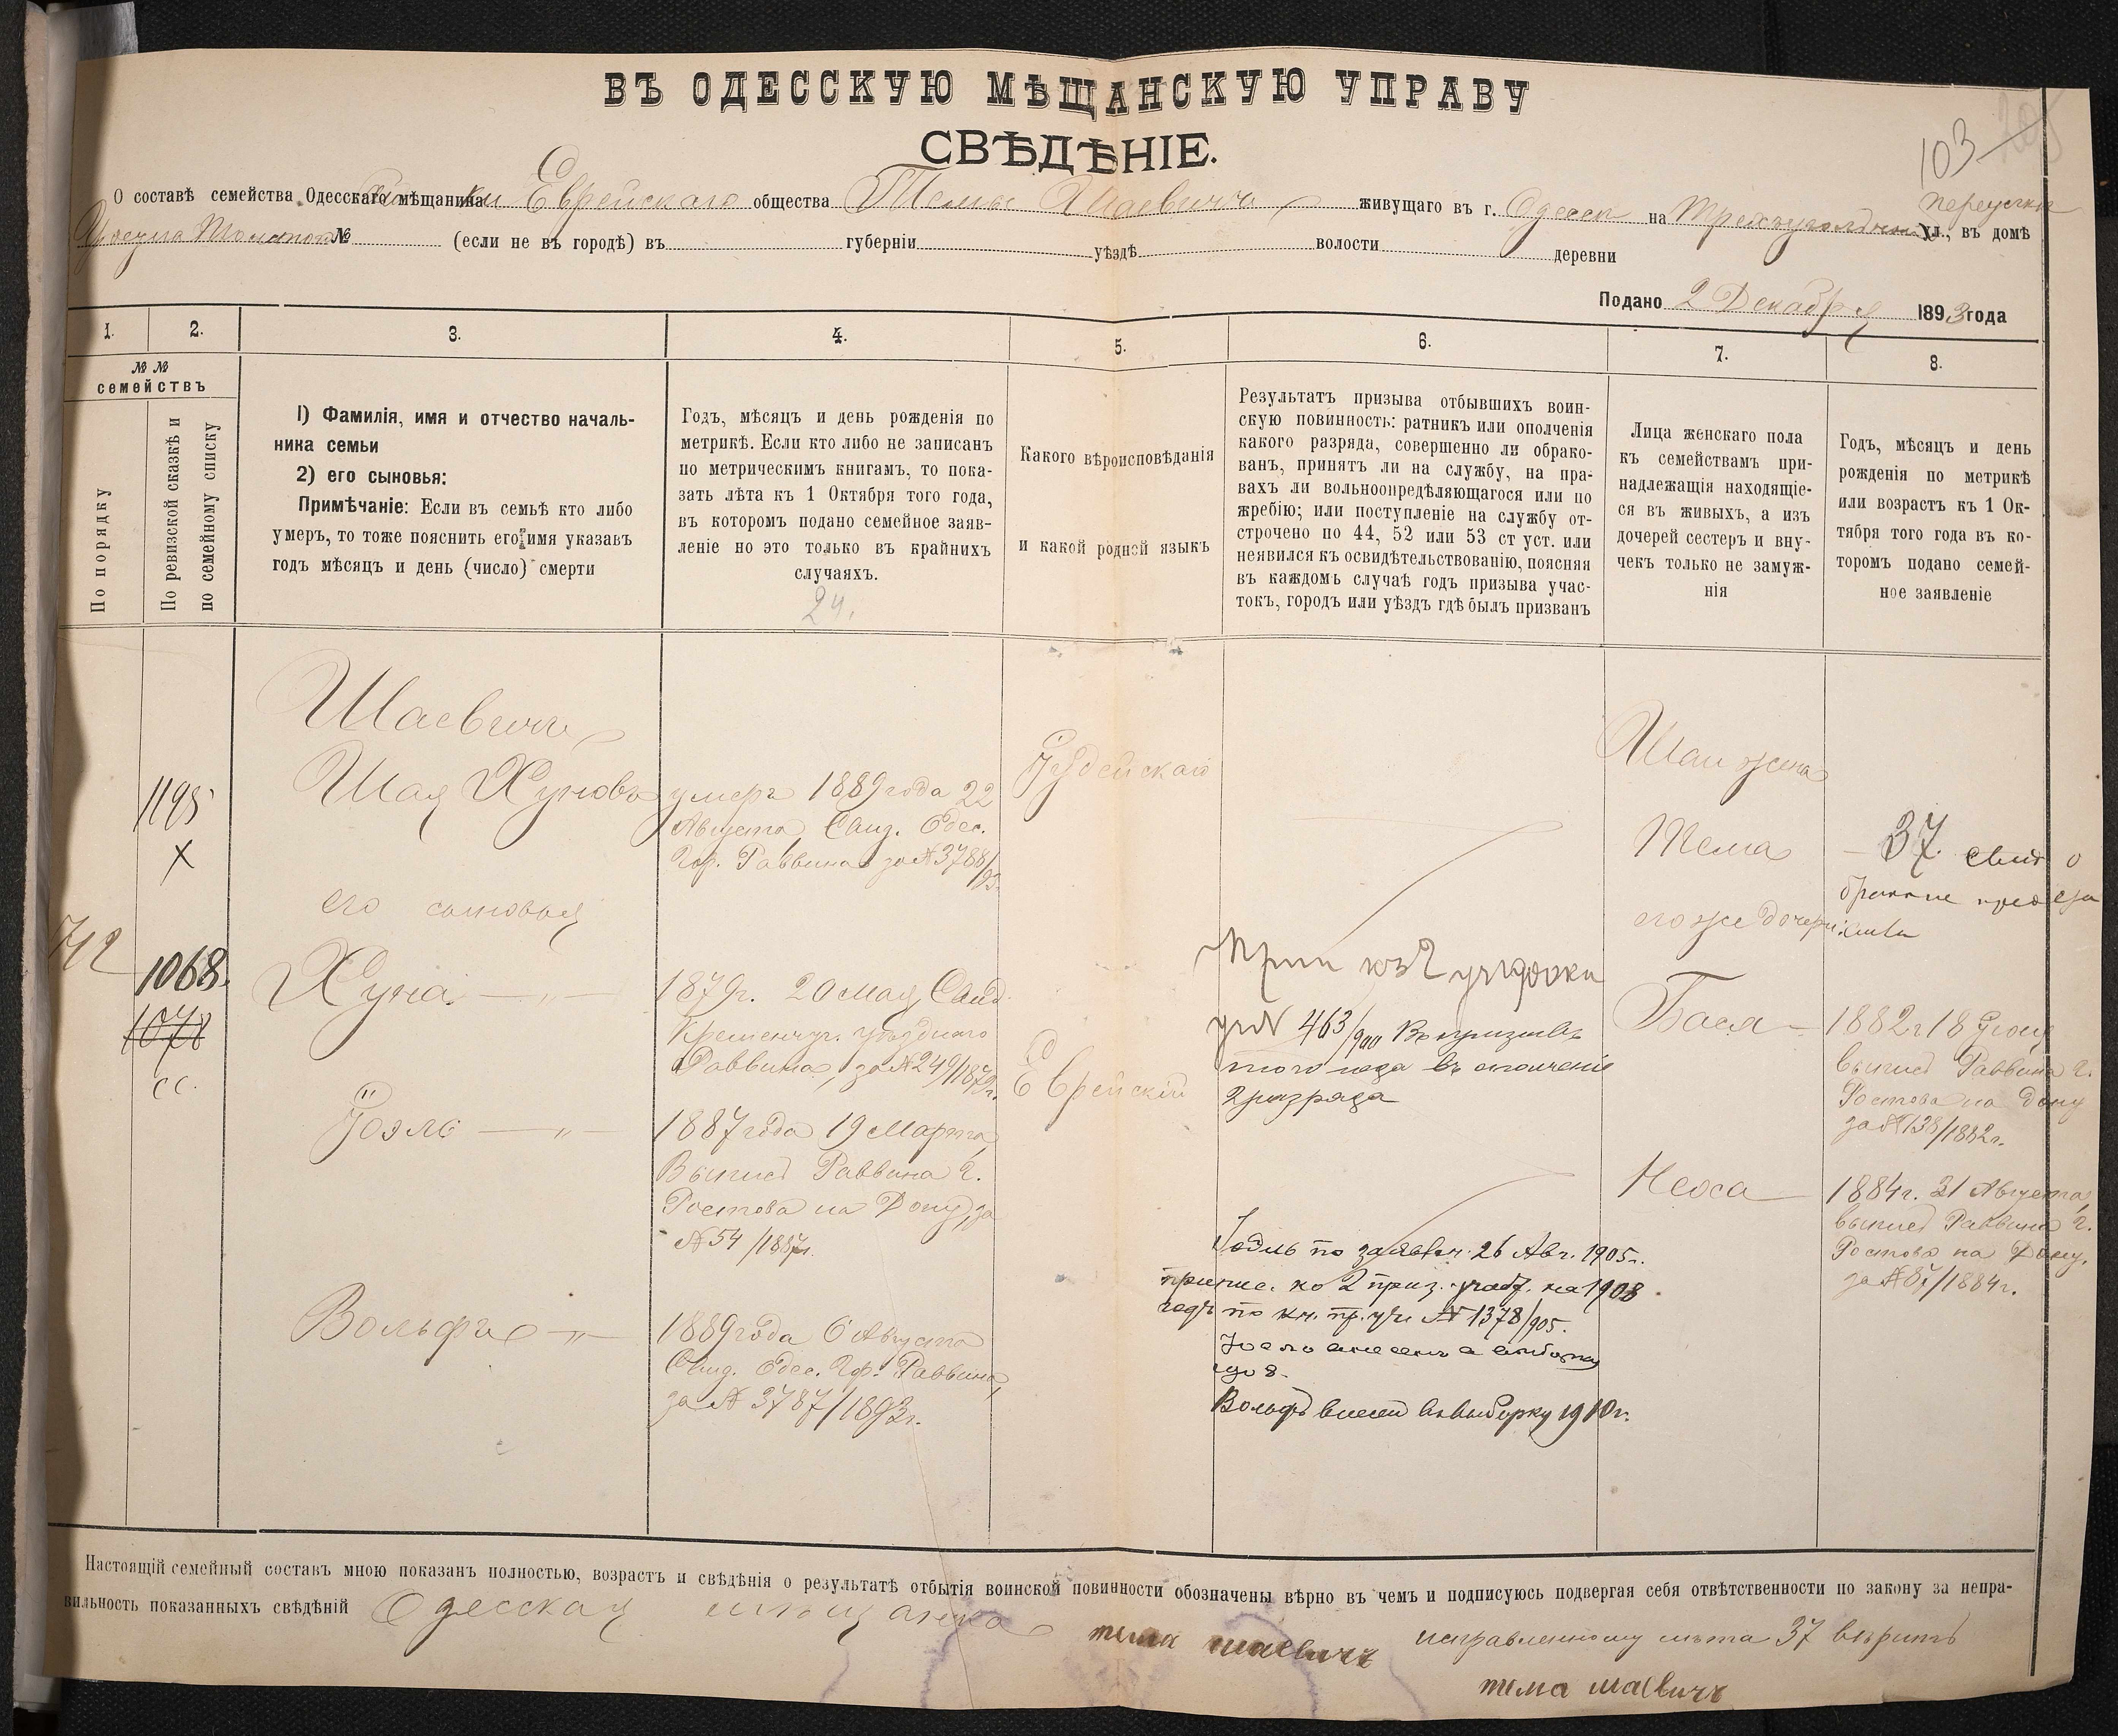 ВЪ ОДЕССКУЮ МѢЩАНСКУЮ УПРАВУ
СВѢДѢНІЕ.
103
О составѣ семейства Одесскаго мѣщанина ки Еврейскаго общества Темы Шаевичъ живущаго въ г. Одессѣ на Треугольномъ переулкѣ ул., въ домѣ
№ (если не въ городѣ) въ губерніи уѣздѣ волости деревни
Подано 2 Декабря 1893 года
1. 2. 3. 4. 5. 6. 7. 8.
№ №
семействъ
По порядку
По ревизской сказкѣ и
по семейному списку
1) Фамилія, имя и отчество началь-
ника семьи
2) его сыновья:
Примѣчаніе: Если въ семьѣ кто либо
умеръ, то тоже пояснить его имя указавъ
годъ мѣсяцъ и день (число) смерти
Годъ, мѣсяцъ и день рожденія по
метрикѣ. Если кто либо не записанъ
по метрическимъ книгамъ, то пока-
зать лѣта къ 1 Октября того года,
въ которомъ подано семейное заяв-
леніе но это только въ крайнихъ
случаяхъ.
24.
Какого вѣроисповѣданія
и какой родной языкъ
Результатъ призыва отбывшихъ воин-
скую повинность: ратникъ или ополченія
какого разряда, совершенно ли обрако-
ванъ, принятъ ли на службу, на пра-
вахъ ли вольноопредѣляющагося или по
жребію; или поступленіе на службу от-
строчено по 44, 52 или 53 ст уст. или
неявился къ освидѣтельствованію, поясняя
въ каждомъ случаѣ годъ призыва учас-
токъ, городъ или уѣздъ гдѣ былъ призванъ
Лица женскаго пола
къ семействамъ при-
надлежащія находящіе-
ся въ живыхъ, а изъ
дочерей сестеръ и вну-
чекъ только не замуж-
нія
Годъ, мѣсяцъ и день
рожденія по метрикѣ
или возрастъ къ 1 Ок-
тября того года въ ко-
торомъ подано семей-
ное заявленіе
742
1195
X
1068.
1078
сс.
Шаевичъ
Шая Хуновъ
его сыновья
Хуна — „ —
Іоэль — „ —
Вольфъ — „ —
умеръ 1889 года 22
Августа, Свид. Одес.
Гор. Раввина за № 3788/93.
1879г. 20 Мая, Свид.
Кременчуг. уѣзднаго
Раввина, за № 249/1879г.
1887 года 19 Марта,
Выпись Раввина г.
Ростова на Дону, за
№ 54/1887г.
1889 года 6 Августа
Свид. Одес. Гор. Раввина,
за № 3787/1893г.
Іудейскаго
Еврейскій
Прип къ 2 участку
№ 463/900 Въ призывѣ
того года въ ополченіе
2 разряда
Іоэль по заявлен. 26 Авг. 1905г.
припис. ко 2 приз. участ. на 1908
годъ по кн. пр. уч. № 1378/905.
Вольфъ внесенъ въ выборку 1910г.
Шаи жена
Тема
его же дочери:
Бася —
Неоса —
— 37 Свид о
1882г 18 Іюня
выпись Раввина г.
Ростова на Дону
за № 138/1882г.
1884г. 31 Августа,
выпись Раввина г.
Ростова на Дону,
за № 87/1884г.
Настоящій семейный составъ мною показанъ полностью, возрастъ и свѣдѣнія о результатѣ отбытія воинской повинности обозначены вѣрно въ чемъ и подписуюсь подвергая себя отвѣтственности по закону за непра-
вильность показанныхъ свѣдѣній Одесская мѣщанка
тема шаевичъ
исправленному лѣта 37 вѣрить
тема шаевичъ